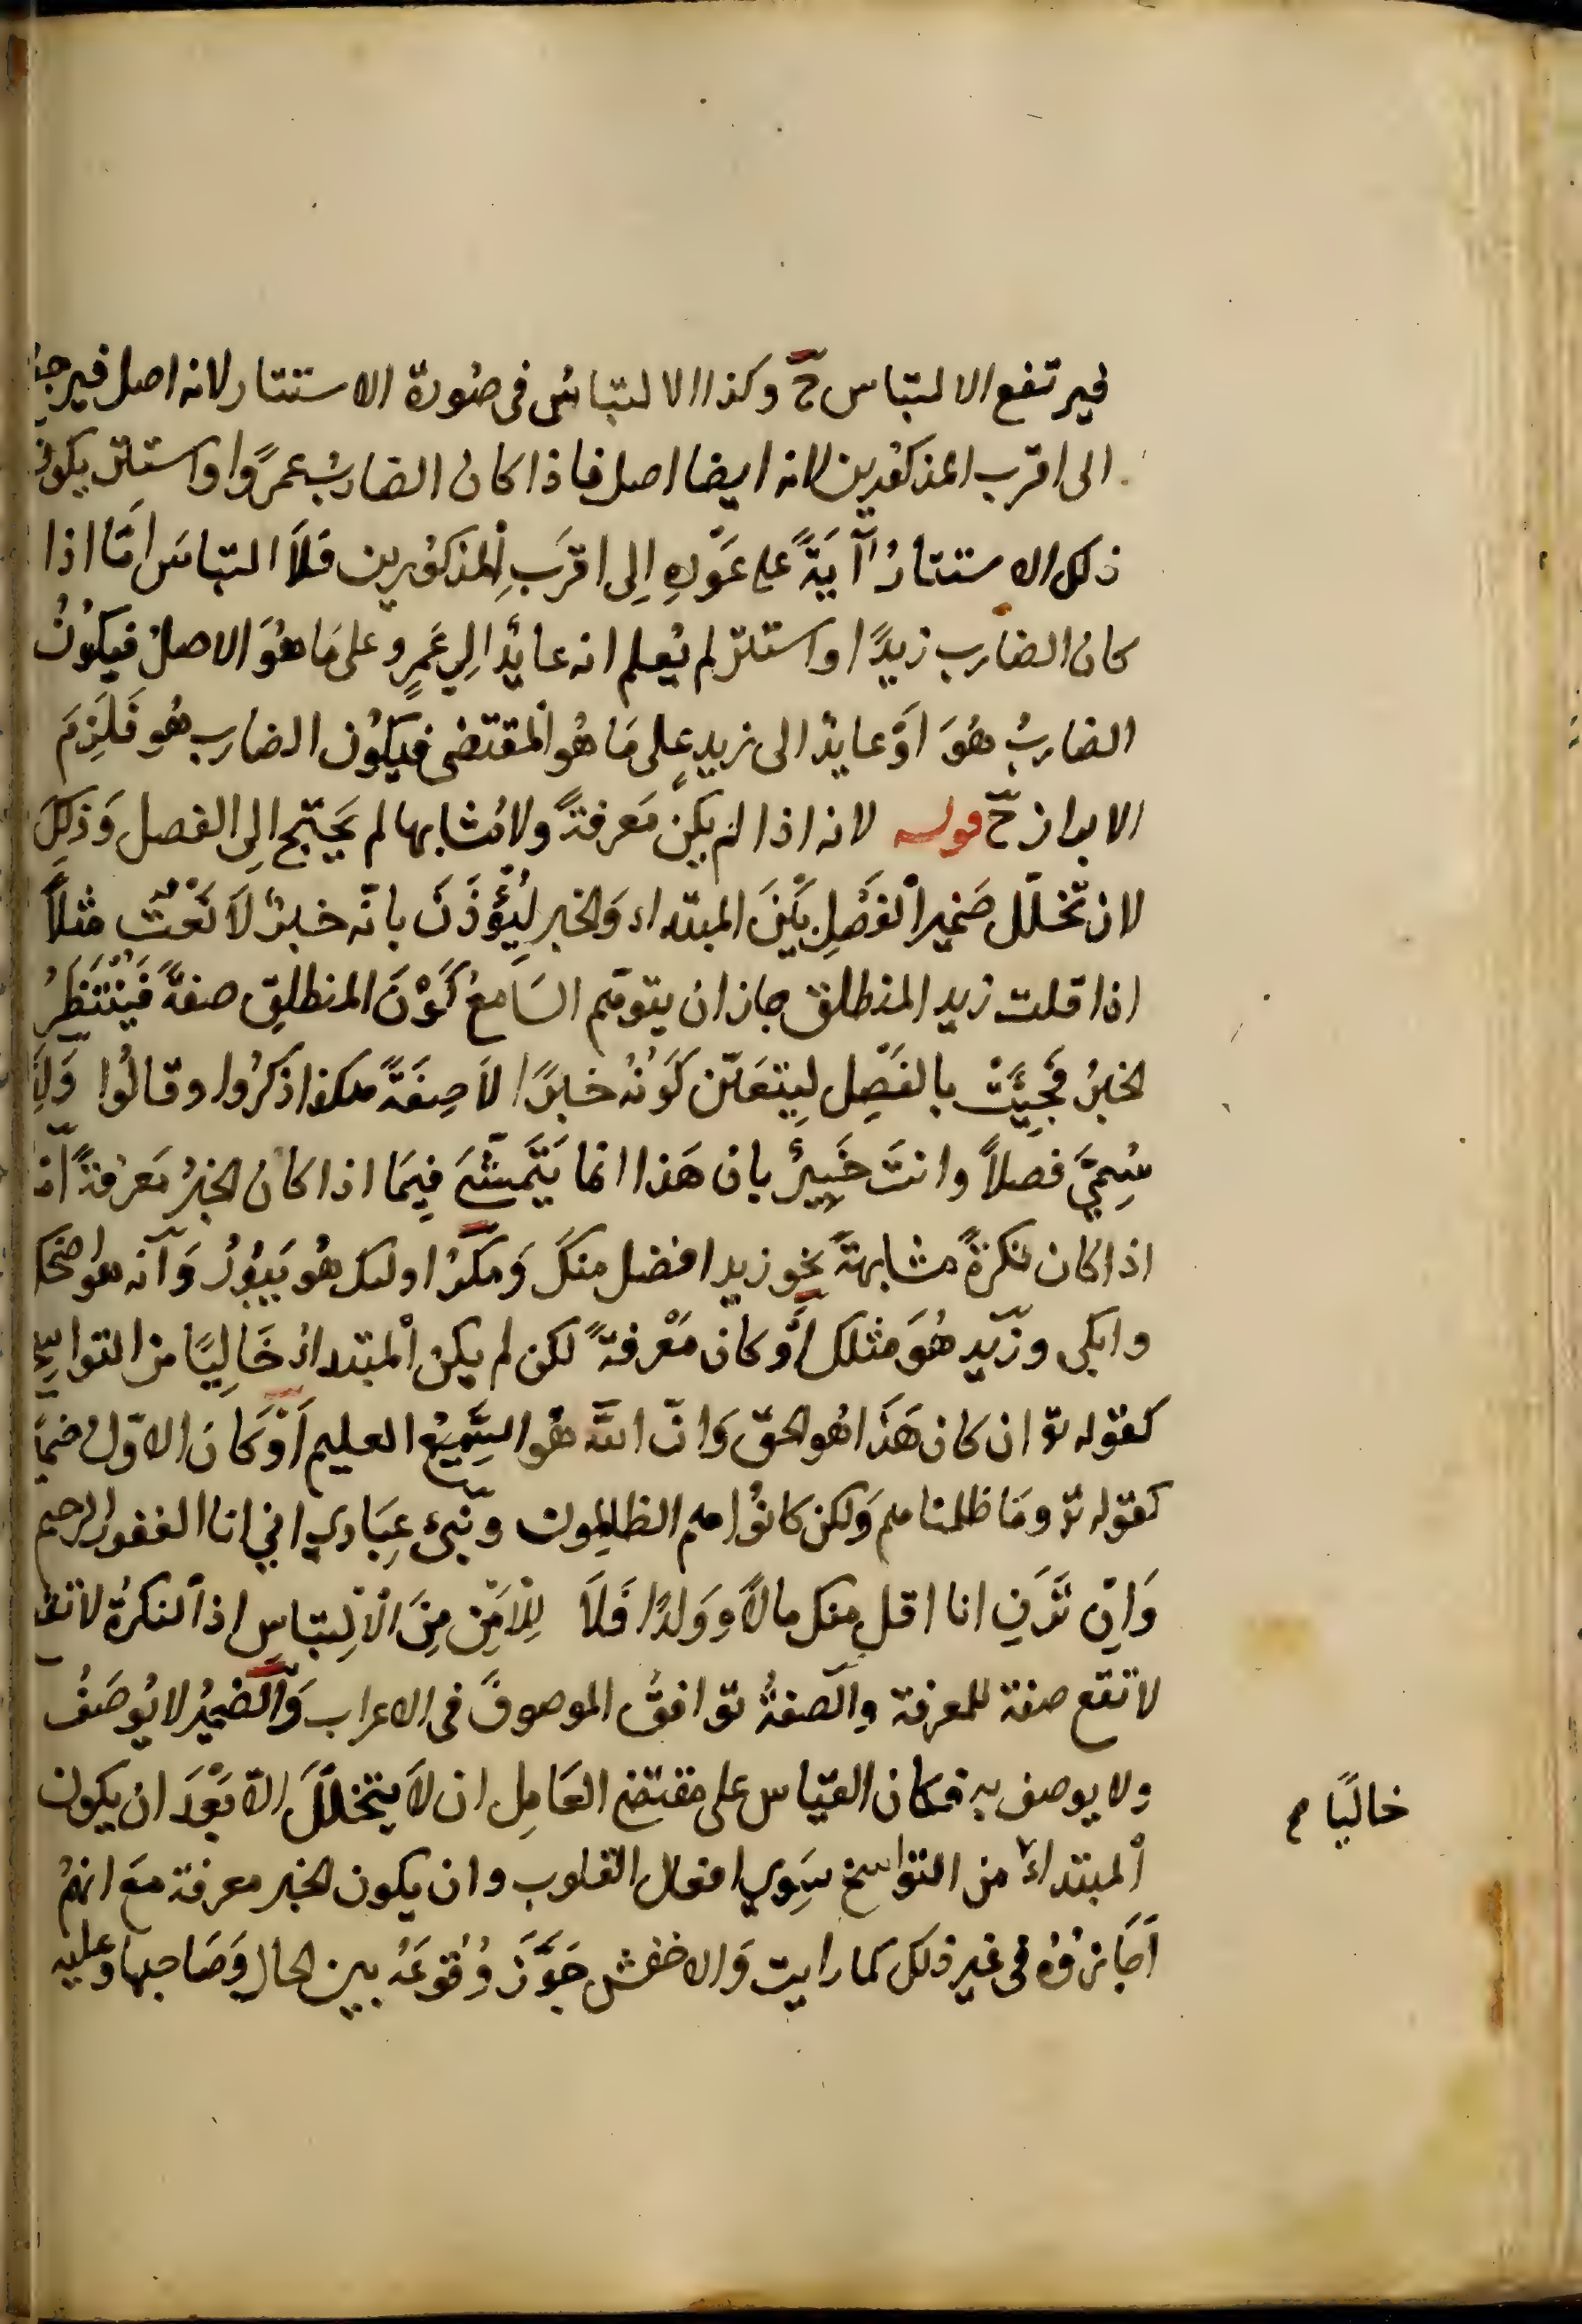 فيرتفع الالتباس ح وكذا الالتباسُ فى صُورة الاستتار لانه اصل فيرجع
الى اقرب المذكورين لانه ايضا اصل فاذا كان الضاربُ عمرًوا واستتر يكون
ذلك الاستتارُ آيَةً على عَوْدِهِ اِلى اقرَبِ المذكورين فلَا التباسَ امَّا اذا
كان الضارب زيدًا واستتر لم يُعلم انه عايدٌ الِى عَمرٍو على مَا هُوَ الاصلُ فيكُونُ
الضاربُ هُوَ اَوْ عايدٌ الى زيدٍ على مَا هُو المقتضى فيكُون الضارب هُو فَلَزِمَ
الابراز ح قوله لانه اذا لم يكن مَعرفةً ولا مُشابها لم يَحتج الِى الفصل وَذلِكَ
لان تخلّل ضمير الفَصْلِ بَيْنَ المبتداء وَالخبر ليُؤْذَنَ بانّه خبرٌ لَا نَعْتٌ مثلاً
اذا قلت زيد المنطلق جاز ان يتوهّم السَامعُ كَوْنَ المنطلِق صفةً فَيَنْتَظِرُ
الخبرُ فجيَّتْ بالفَصْلِ ليتعَيّن كَوْنُهُ خبرًا لَا صِفَةً هكذا ذكرُوا وقالُوا وَلِذَا
سُمِيَّ فَصلاً وانتَ خَبِيرٌ بان هَذا انما يَتَمشَّى فيمَا اذا كان الخبرُ مَعرفةً امّا
اذا كان نكرةً مشابهةً نحو زيد افضل منكَ وَمكرُ اولئك هُو يَبُورُ وَانّه هُو اضحك
وابكى وزَيد هُوَ مثلك اَوْ كان مَعْرفةً لكن لم يكن المبتداءُ خَالِيًا من النواسخ
كقوله تع ان كان هَذَا هُو الحقّ وَانّ اللّٰهَ هُو السَّمِيعُ العليم اَوْ كَانَ الاوّل ضميرًا
كقوله تع ومَا ظلمناهم وَلكن كانوُا هم الظالِمون ونَبِّئ عِبَادِي انى انا الغفور الرحيم
وَاِن تَرَنِ انا اقل منك مالاً ووَلَدًا فَلَا لِلْاَمْنِ مِنَ الْاِلتِباسِ اذ النكرةُ لا تقع
لا تقع صفة للمعرفة والصفةُ توافقُ الموصوفَ فى الاعراب وَالضميرُ لا يُوصَفُ
ولا يوصف به فكان القيَاس على مقتضى العَامِل ان لَا يتخلّلَ الّا بَعْدَ ان يكون
المبتداءُ من النواسخ سِوَى افعال القلوب وان يكون الخبر معرفة مَعَ انهمُ
اَجَازوُه فى غير ذلك كما رايت وَالاخفش جَوَّزَ وُقوعَهُ بين الحال وَصَاحبها وعليه
خاليًا م